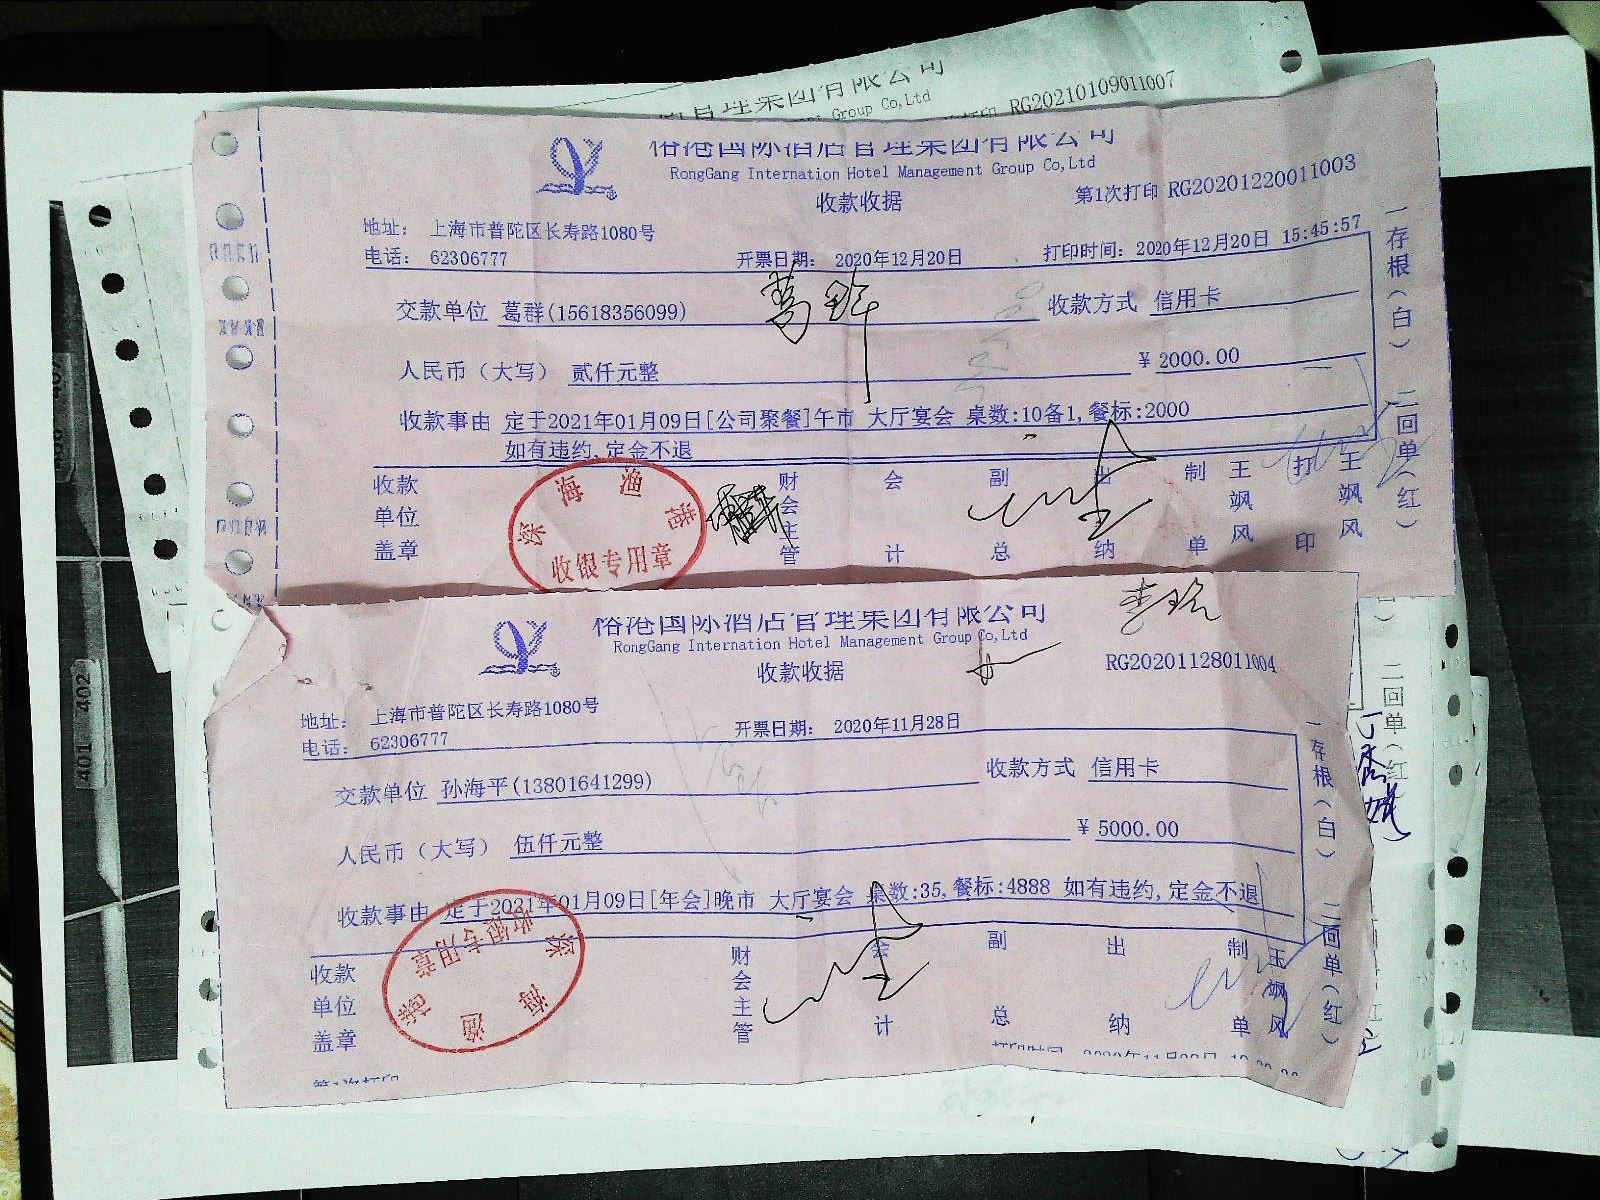 RG20210109011007
Group Co,Ltd
俗港国际酒店管理集团有限公司
RongGang Internation Hotel Management Group Co,Ltd
收款收据
第1次打印 RG20201220011003
地址： 上海市普陀区长寿路1080号
电话： 62306777 开票日期： 2020年12月20日 打印时间：2020年12月20日 15:45:57
交款单位 葛群(15618356099) 葛群 收款方式 信用卡
人民币（大写） 贰仟元整 ¥ 2000.00
收款事由 定于2021年01月09日[公司聚餐]午市 大厅宴会 桌数:10备1,餐标:2000
如有违约,定金不退
收款单位盖章 财会主管 会计 副总 出纳 制单 王飒风 打印 王飒风
深海渔港
收银专用章
一存根（白） 二回单（红）
俗港国际酒店管理集团有限公司
RongGang Internation Hotel Management Group Co,Ltd
收款收据
RG20201128011004
地址： 上海市普陀区长寿路1080号
电话： 62306777 开票日期： 2020年11月28日
交款单位 孙海平(13801641299) 收款方式 信用卡
人民币（大写） 伍仟元整 ¥ 5000.00
收款事由 定于2021年01月09日[年会]晚市 大厅宴会 桌数:35,餐标:4888 如有违约,定金不退
收款单位盖章 财会主管 会计 副总 出纳 制单 王飒风
深海渔港
收银专用章
一存根（白） 二回单（红）
第1次打印
二回单（红）
402
401